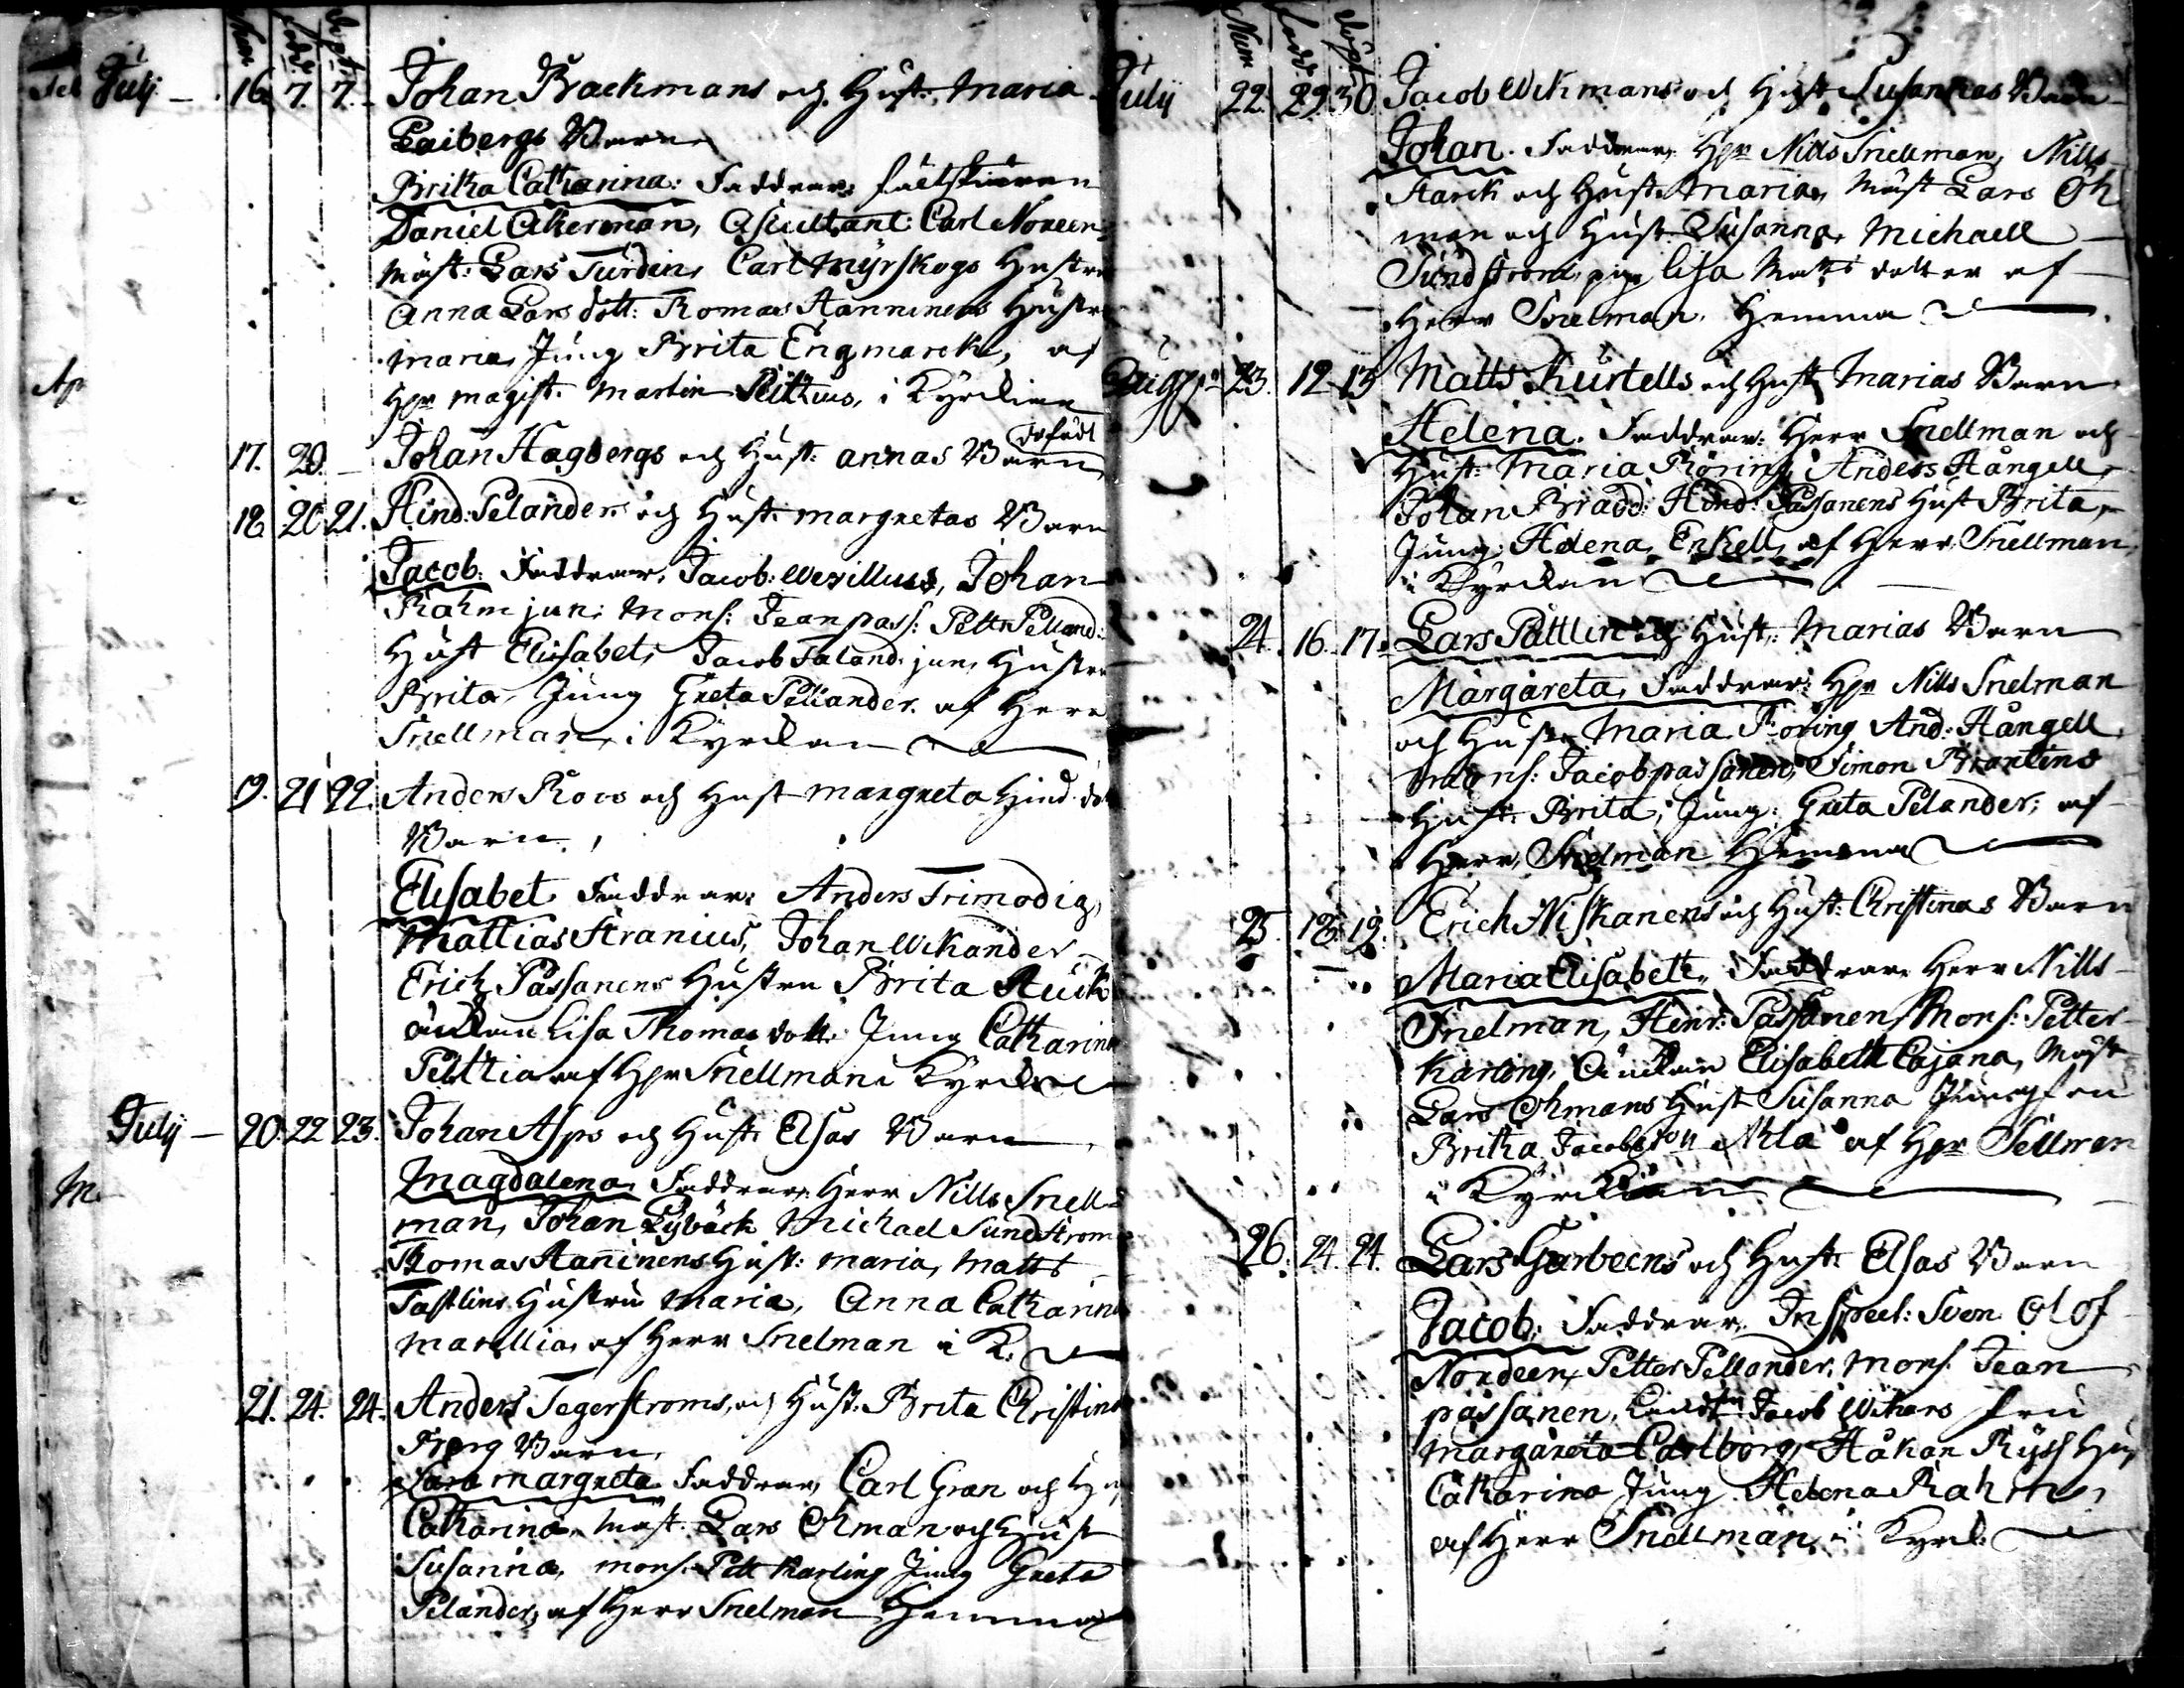 Num Född Döpt
July 16. 7. 7. Johan Brackmans och Hust: Maria
Laibergs Barn
Britha Catharina: Faddrar: fältskären
Daniel Åkerman, Ascultant: Carl Noreen
Mäst: Lars Turdin, Carl Myrskogs Hustru
Anna Lars dott: Thomas Hanninens Hustru
Maria, Jung Brita Engmarck, af
Hr Magist. Martin Pitthius, i Kyrckian
17. 20. Johan Hagbergs och Hust: annas Barn dödfödt
18 20 21. Hind: Pelanders och Hust: margretas Barn
Jacob. Faddrar, Jacob: Wexillius, Johan
Rahm jun: Mons: Jean pass: Pettr Pelland:
Hust Elisabet, Jacob Faland. jun, Hustru
Brita, Jung Greta Pellander. af Herr
Snellman, i Kyrckan
19. 21 22. Anders Roos och Hust margreta Hind dot
Barn
Elisabet Faddrar: Anders Frimodig,
Mattias Stranius, Johan Wikander
Erich Passanens Hustru Brita
änckan Lisa Thomas dott: Jung Catharina
af Hr Snellman i Kyrck
July 20. 22 23. Johan Asps och Hust: Elsas Barn
Magdalena, Faddrar, Herr Nills Snell-
man, Johan Lybäck Michael Sundstrom
Thomas Hanninens Hust: Maria, Matts
Fastlins Hustru Maria, Anna Catharina
af Herr Snelman i K.
21. 24. 24. Anders Tegerstroms, och Hust: Brita Christina
Barn
Sara Margreta Faddrar, Carl Gran och Hu
Catharina, Mäst: Lars Öhman och Hust
Susanna, mons: Pett Karling Jung Greta
Pelander, af Herr Snelman Hemma
Num Född Döpt
July 22. 29. 30. Jacob Wikmans och Hust Susannas Barn
Johan. Faddrar, Hr Nills Snellman, Nills
Starck och Hust: Maria, Mäst Lars Öh
man och Hust: Susanna, Michaell
Sundstrom, pig Lisa Matts dotter af
Herr Snelman. Hemma
Augusti 23. 12 13 Matts Kurtells och Hust Marias Barn
Helena. Faddrar: Herr Snellman och
Hust: Maria Roring, Anders Hångell,
Johan Bradd: Hind: Passanens Hust Brita,
Jung: Helena, Enkell, af Herr Snellman,
i Kyrckan
24. 16. 17. Lars Pattlin och Hust: Marias Barn
Margareta, Faddrar: Hr Nills Snelman
och Hust: Maria Roring And: Hångell
Mons: Jacob passanen, Simon Brantins
Hust: Brita, Jung: Greta Pelander, af
Herr, Snelman Hemma
25. 18. 19. Erich Niskanens och Hust: Christinas Barn
Maria Elisabett, Faddrar Herr Nills
Snelman, Henr: Passanen, Mons: Petter
Karling, Änckan Elisabeth Cajana, Mäst
Lars Öhmans Hust Susanna Jungfru
Britha Jacobs af Hr Sellman
i Kyrckian
26. 24. 24. Lars Garbeens och Hust: Elsas Barn
Jacob, Faddrar, Inspect: Sven Olof
Nordeen, Petter Pellander, Mons. Jean
passanen, Jacob Wikars fru
Margareta Carlborg, Håkan Rysss Hu
Catharina Jung: Helena Rahm,
af Herr Snellman, i Kyrck: